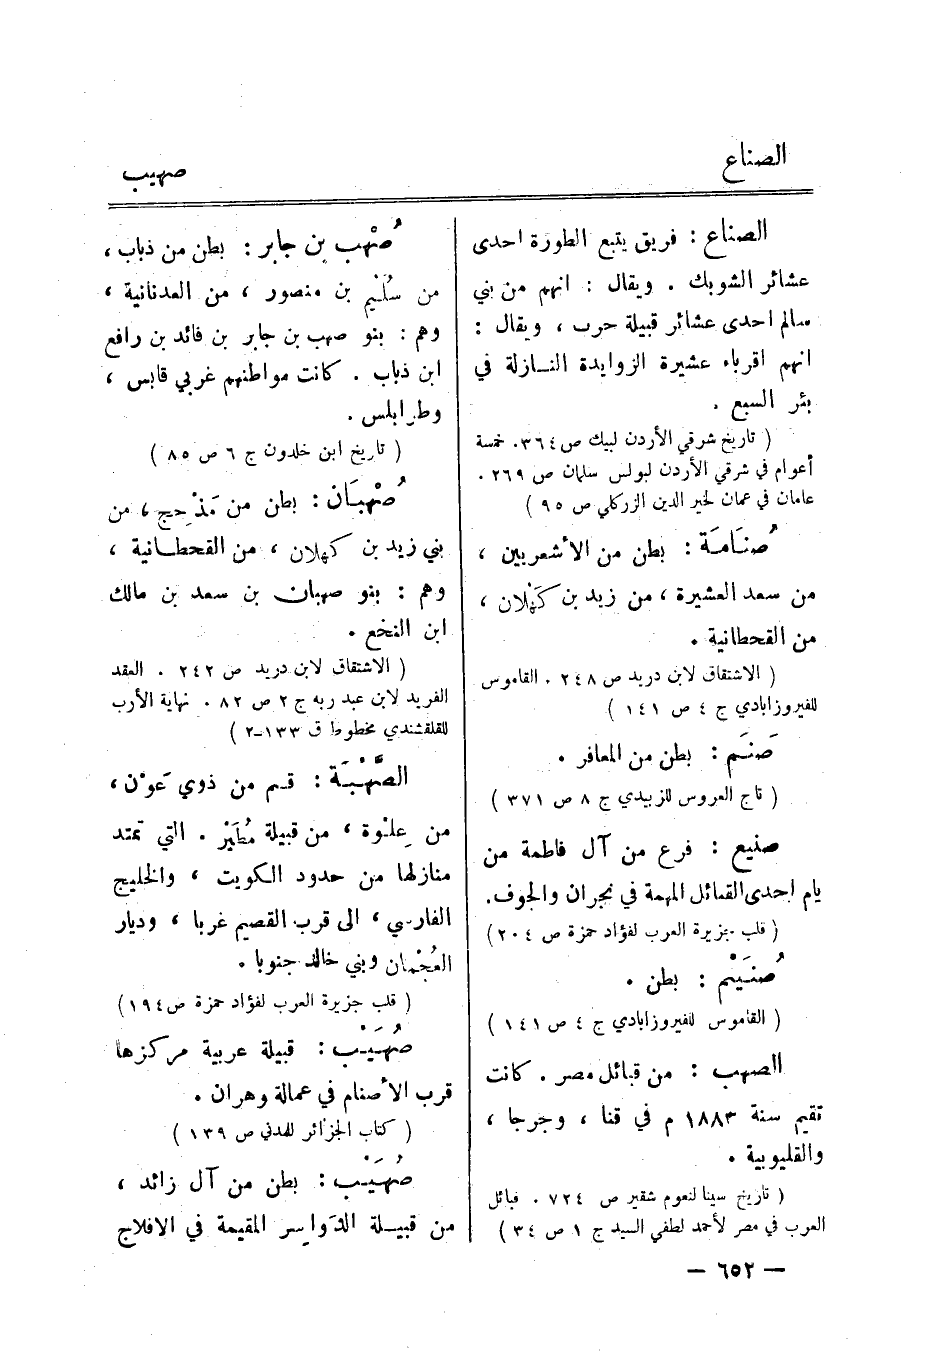 الصناع
صهيب
الصناع : فريق يتبع الطورة احدى
عشائر الشوبك . ويقال : انهم من بني
سالم احدى عشائر قبيلة حرب ، ويقال :
انهم اقرباء عشيرة الزوايدة النـازلة في
بئر السبع .
( تاريخ شرقي الأردن لبيك ص ٣٦٤. خمسة
أعوام في شرقي الأردن لبولس سلمان ص ٢٦٩ .
عامان في عمان لخير الدين الزركلي ص ٩٥ )
صُنَامَة : بطن من الأشعريين ،
من سعد العشيرة ، من زيد بن كَهْلان ،
من القحطانية .
( الاشتقاق لابن دريد ص ٢٤٨ . القاموس
للفيروزابادي ج ٤ ص ١٤١ )
صَنَم : بطن من المعافر .
( تاج العروس للزبيدي ج ٨ ص ٣٧١ )
صنيع : فرع من آل فاطمة من
يام إحدى القبائل المهمة في نجران والجوف.
( قلب جزيرة العرب لفؤاد حمزة ص ٢٠٤ )
صُنَيْم : بطن .
( القاموس للفيروزابادي ج ٤ ص ١٤١ )
الصهب : من قبائل مصر . كانت
تقيم سنة ١٨٨٣ م في قنا ، وجرجا ،
والقليوبية .
( تاريخ سينا لنعوم شقير ص ٧٢٤ . قبائل
العرب في مصر لأحمد لطفي السيد ج ١ ص ٣٤ )
صُهْب بن جابر : بطن من ذباب ،
من سُلَيْم بن منصور ، من العدنانية ،
وهم : بنو صهب بن جابر بن فائد بن رافع
ابن ذباب . كانت مواطنهم غربي قابس ،
وطرابلس .
( تاريخ ابن خلدون ج ٦ ص ٨٥ )
صُهْبَان : بطن من مَذْحِج ، من
بني زيد بن كهلان ، من القحطـانية ،
وهم : بنو صهبان بن سعد بن مالك
ابن النخع .
( الاشتقاق لابن دريد ص ٢٤٢ . العقد
الفريد لابن عبد ربه ج ٢ ص ٨٢ . نهاية الأرب
للقلقشندي مخطوط ق ١٣٣-٢ )
الصُّهْبَة : قسم من ذوي عَوْن ،
من عِلْوة ، من قبيلة مُطَيْر . التي تمتد
منازلها من حدود الكويت ، والخليج
الفارسي ، الى قرب القصيم غربا ، وديار
العُجْمان وبني خالد جنوبا .
( قلب جزيرة العرب لفؤاد حمزة ص ١٩٤ )
صُهَيْب : قبيلة عربية مركزها
قرب الأصنام في عمالة وهران .
( كتاب الجزائر للمدني ص ١٣٩ )
صُهَيْب : بطن من آل زائد ،
من قبيلة الدَواسر المقيمة في الافلاج
— ٦٥٢ —